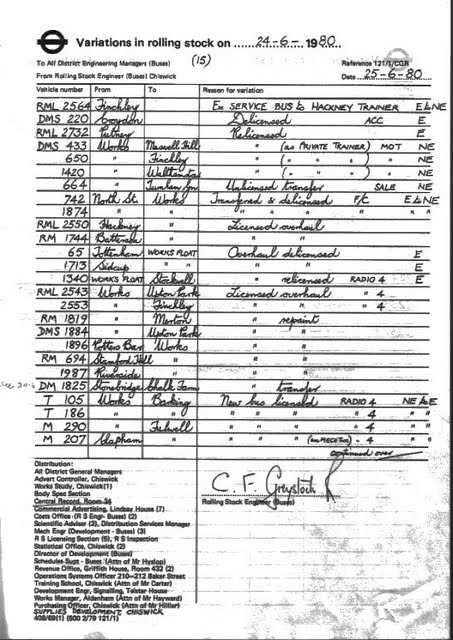 Variations in rolling stock on 24-6- 1980
To All District Engineering Managers (Buses) (15) Reference 121/1/CGR
From Rolling Stock Engineer (Buses) Chiswick Date 25-6-80
Vehicle number From To Reason for variation
RML 2564 Finchley Ex SERVICE BUS to HACKNEY TRAINER E&NE
DMS 220 Croydon Delicensed ACC E
RML 2732 Putney Relicensed E
DMS 433 Works Muswell Hill " (as PRIVATE TRAINER) MOT NE
650 " Finchley " ( " " ) " NE
1420 " Walthamstow " ( " " ) " NE
664 " Unlicensed transfer SALE NE
742 North St. Works Transferred & delicensed F/C E&NE
1874 " " " " " " "
RML 2550 Hackney " Licensed overhaul
RM 1744 Battersea " " "
65 Tottenham WORKS FLOAT Overhaul delicensed E
1713 Sidcup " " " E
1340 WORKS FLOAT Stockwell " relicensed RADIO 4 E
RML 2543 Works Upton Park Licensed overhaul " 4
2553 " Finchley " " " 4
RM 1819 " Merton " repaint
DMS 1884 " Upton Park " "
1896 Potters Bar Works " "
RM 694 Stamford Hill " " "
1987 Riverside " " "
See 20.6 DM 1825 Stonebridge Chalk Farm " transfer
T 105 Works Barking New bus licensed RADIO 4 NE&E
T 186 " " " " " " 4 " "
M 290 " Fulwell " " " " 4 " "
M 207 Clapham " " " " - 4 " "
continued over
Distribution:
All District General Managers
Advert Controller, Chiswick
Works Study, Chiswick(1)
Body Spec Section
Central Record, Room 36
Commercial Advertising, Lindsay House (7)
Costs Office (R S Engr- Buses) (2)
Scientific Adviser (2), Distribution Services Manager
Mech Engr (Development - Buses) (3)
R S Licensing Section (5), R S Inspection
Statistical Office, Chiswick (2)
Director of Development (Buses)
Schedules Supt - Buses (Attn of Mr Hyslop)
Revenue Office, Griffith House, Room 432 (2)
Operations Systems Officer 210-212 Baker Street
Training School, Chiswick (Attn of Mr Carter)
Development Engr, Signalling, Telstar House
Works Manager, Aldenham (Attn of Mr Hayward)
Purchasing Officer, Chiswick (Attn of Mr Hillier)
SUPPLIES DEVELOPMENT, CHISWICK
408/69(1) (500 2/79 121/1)
C. F. Greystock
Rolling Stock Engineer (Buses)